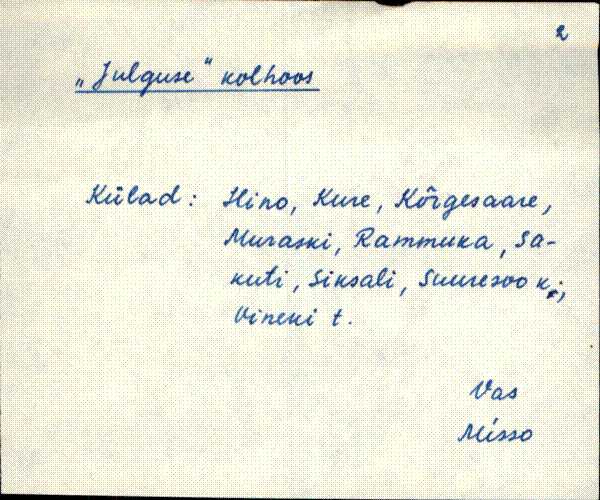 2
„Julguse“ kolhoos
Külad: Hino, Kure, Kõrgesaare,
Muraski, Rammuka, Sa-
kuti, Siksali, Suuresoo k.,
Vineki t.
Vas
Misso